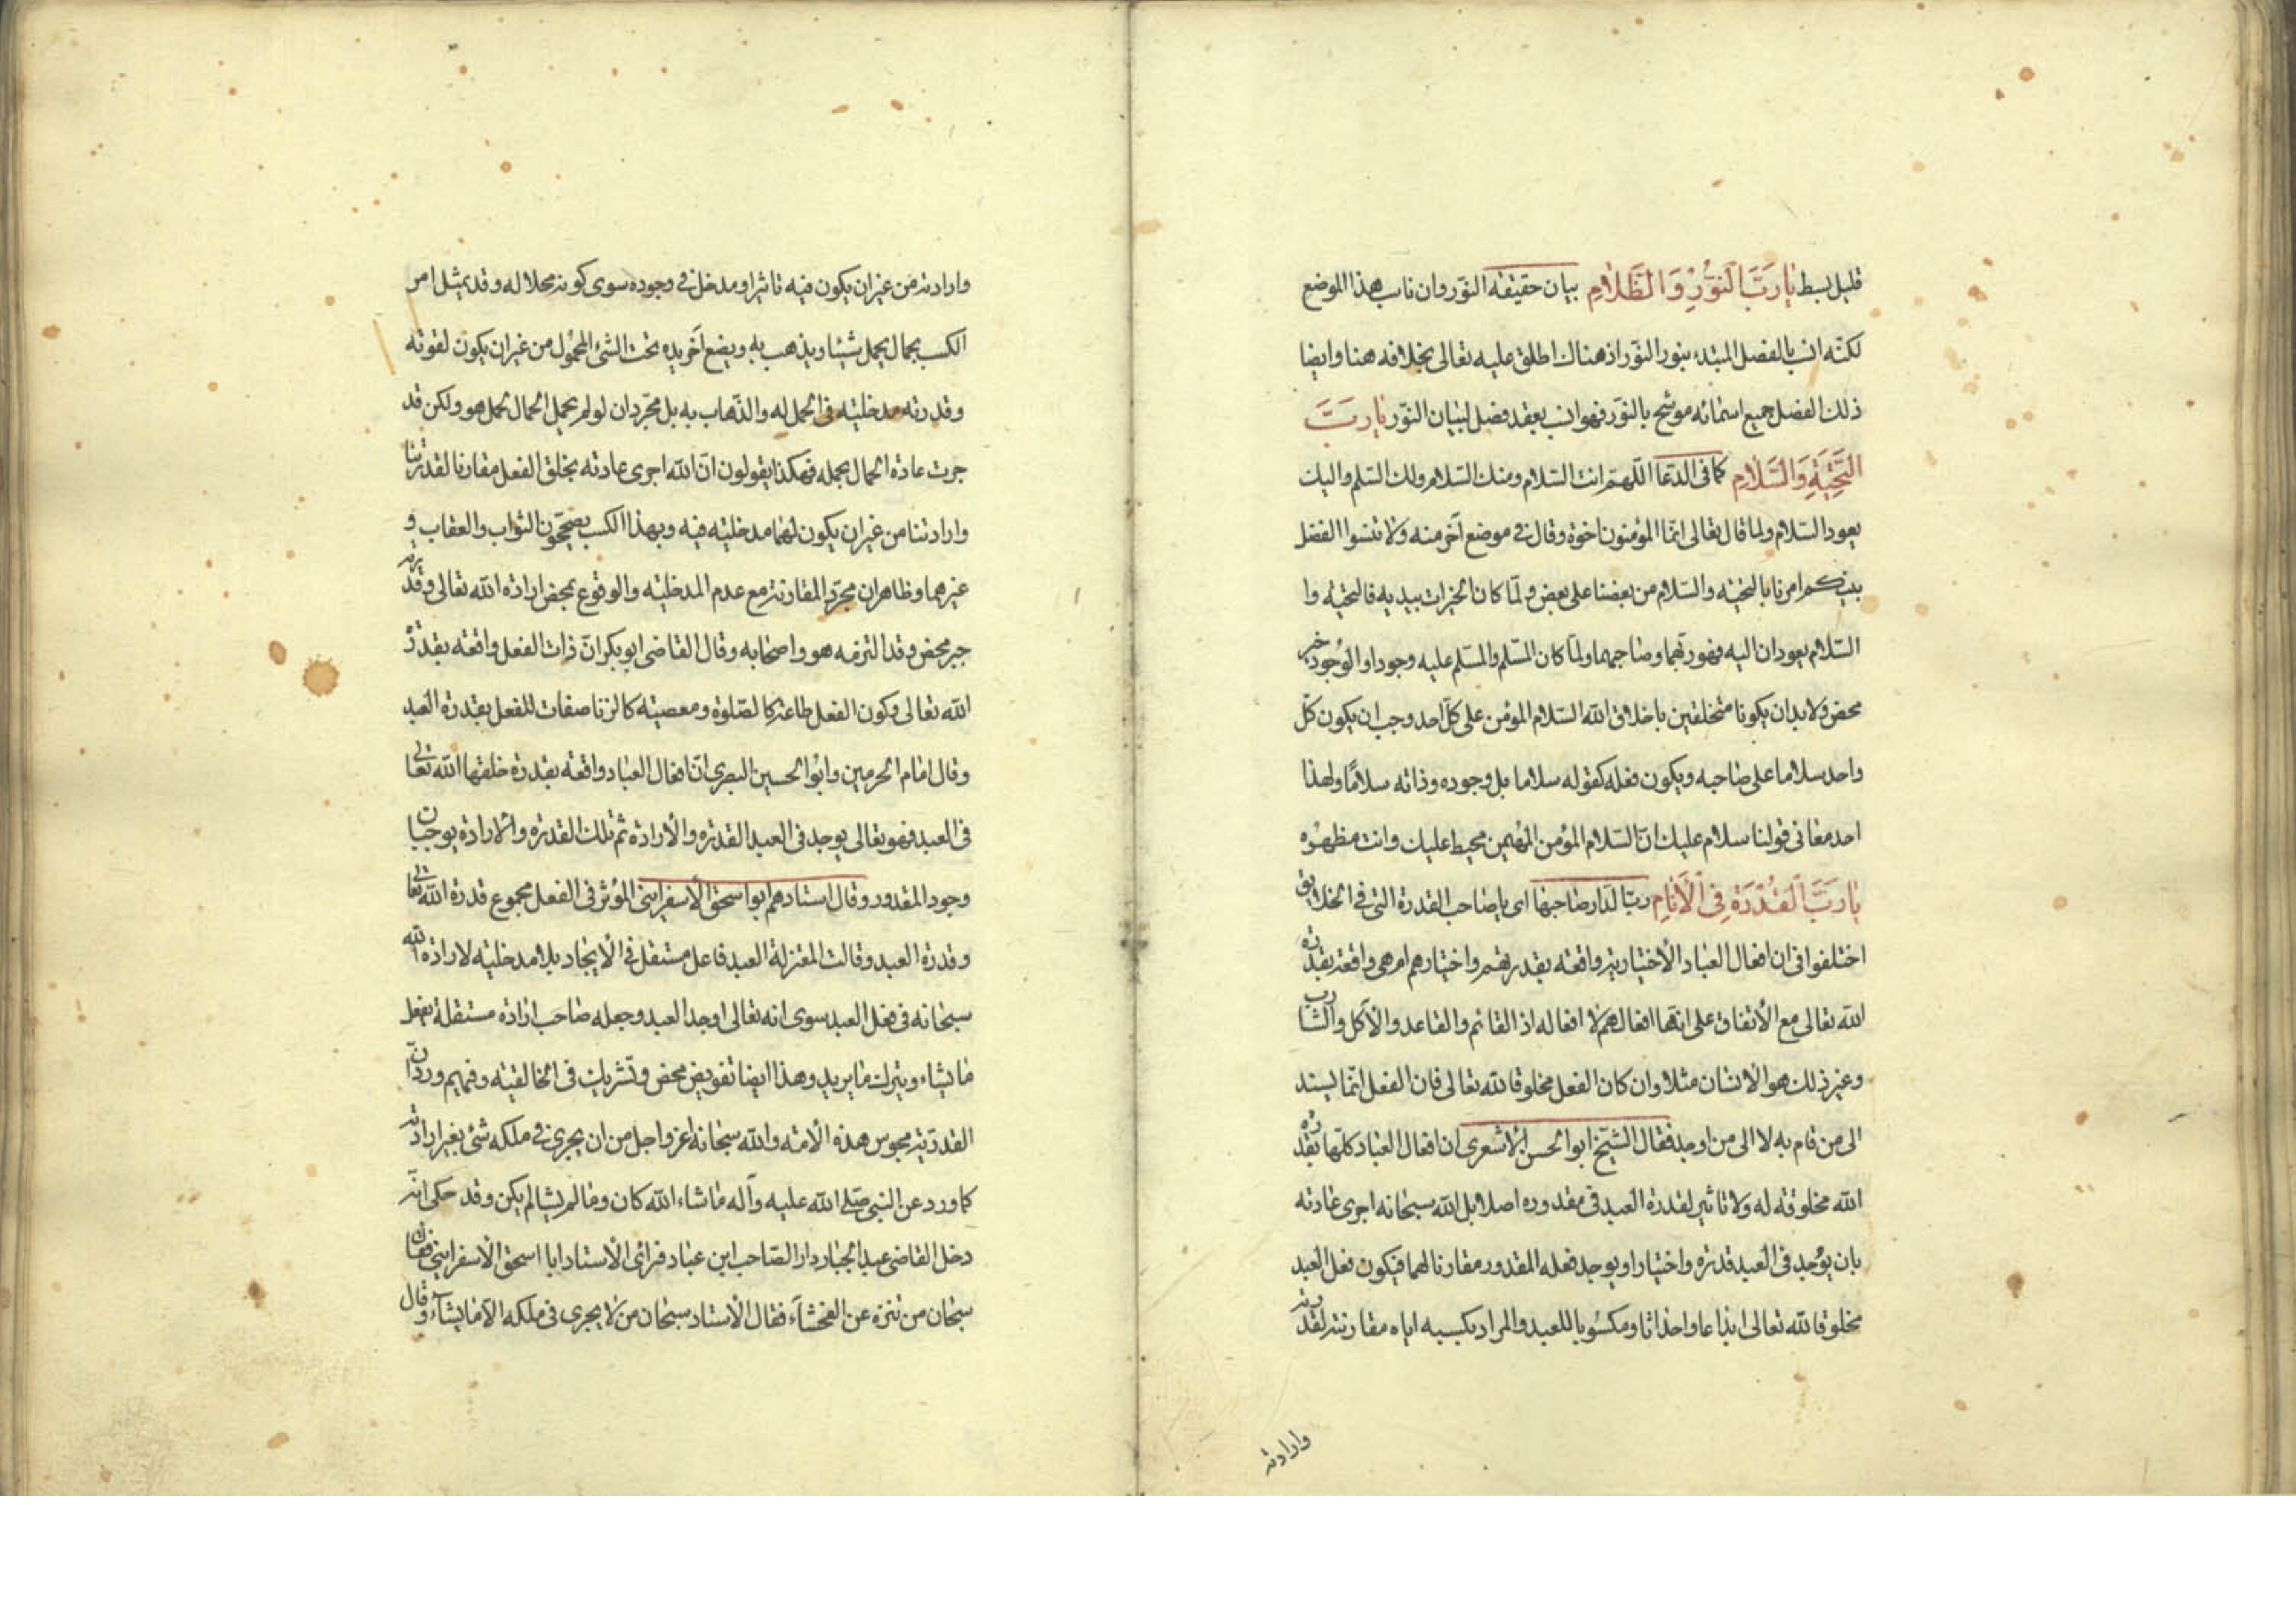 قليل بسط يا رَبَّ النُّورِ وَالظَّلامِ بيان حقيقة النّور وان ناسب هذا الموضع
لكنّه انسب بالفصل المبتدء بنور النّور اذ هناك اطلق عليه تعالى بخلافه هنا وايضا
ذلك الفصل جميع اسمائه موشح بالنّور فهو انسب بعقد فصل لبيان النّور يا رَبَّ
التَّحِيَّةِ وَالسَّلامِ كما فى الدّعا اللّهمّ انت السّلام ومنك السّلام ولك السّلم واليك
يعود السّلام ولما قال تعالى انّما المؤمنون اخوة وقال فى موضع آخر منه ولا تنسوا الفضل
بينكم امرنا بالتحيّه والسّلام من بعضنا على بعض ولمّا كان الخيرات بيديه فالتحيّه وا
السّلام يعودان اليه فهو ربّهما وصاحبهما ولمّا كان المسلّم والمسلّم عليه وجودا والوجود خير
محض ولابد ان يكونا متخلقين باخلاق الله السّلام المؤمن على كلّ احد وجب ان يكون كلّ
واحد سلاما على صاحبه ويكون فعله كقوله سلاما بل وجوده وذاته سلامًا ولهذا
احد معانى قولنا سلام عليك انّ السّلام المؤمن المهيمن محيط عليك وانت مظهره
يا رَبَّ الْقُدْرَةِ فِى الْأَنامِ ربّ الدّار صاحبها اى يا صاحب القدرة التى فى الخلايق
اختلفوا فى ان افعال العباد الاختياريّة واقعه بقدرتهم واختيارهم ام هى واقعة بقدرة
الله تعالى مع الاتفاق على انّها افعالهم لا افعاله اذ القائم والقاعد والآكل والشارب
وغير ذلك هو الانسان مثلا وان كان الفعل مخلوقا لله تعالى فان الفعل انّما يسند
الى من قام به لا الى من اوجد فقال الشّيخ ابو الحسن الاشعرى ان افعال العباد كلّها بقدرة
الله مخلوقه له ولا تاثير لقدرة العبد فى مقدوره اصلا بل الله سبحانه اجرى عادته
بان يوجد فى العبد قدرة واختيارا ويوجد فعله المقدور مقارنا لهما فيكون فعل العبد
مخلوقا لله تعالى ابداعا واحداثا ومكسوبا للعبد والمراد بكسبه اياه مقارنته لقدرته
وارادته
وارادته من غير ان يكون فيه تاثير او مدخل فى وجوده سوى كونه محلا له وقد يمثل امر
الكسب بحمال يحمل شيئا ويذهب به ويضع آخر يده تحت الشئ المحمول من غير ان يكون لقوته
وقدرته مدخليّه فى الحمل له والذّهاب به بل مجرّد ان لو لم يحمل الحمال لحمل هو ولكن قد
جرت عادة الحمال بحمله فهكذا يقولون انّ الله اجرى عادته بخلق الفعل مقارنا لقدرتنا
وارادتنا من غير ان يكون لهما مدخليّه فيه وبهذا الكسب يصحّحون الثواب والعقاب و
غيرهما وظاهر ان مجرّد المقارنة مع عدم المدخليّه والوقوع بمحض ارادة الله تعالى وقدرته
جبر محض وقد التزمه هو واصحابه وقال القاضى ابو بكر انّ ذات الفعل واقعه بقدرة
الله تعالى وكون الفعل طاعة كالصّلوة ومعصيته كالزنا صفات للفعل بقدرة العبد
وقال امام الحرمين وابو الحسين البصرى انّ افعال العباد واقعه بقدرة خلقها الله تعالى
فى العبد فهو تعالى يوجد فى العبد القدرة والارادة ثم تلك القدرة والارادة يوجبان
وجود المقدور وقال استادهم ابو اسحق الاسفراينى المؤثر فى الفعل مجموع قدرة الله تعالى
وقدرة العبد وقالت المعتزلة العبد فاعل مستقل فى الايجاد بلا مدخليّه لارادة الله
سبحانه فى فعل العبد سوى انه تعالى اوجد العبد وجعله صاحب ارادة مستقلة يفعل
ما يشاء ويترك ما يريد وهذا ايضا تفويض محض وتشريك فى الخالقيّه وفيهم ورد انّ
القدريّة مجوس هذه الامّه والله سبحانه اعز واجل من ان يجرى فى ملكه شئ بغير ارادته
كما ورد عن النبى صلى الله عليه وآله ما شاء الله كان وما لم يشا لم يكن وقد حكى انّه
دخل القاضى عبد الجبار دار الصّاحب ابن عباد فرائى الاستاد ابا اسحق الاسفراينى فقال
سبحان من تنزه عن الفحشاء فقال الاستاد سبحان من لا يجرى فى ملكه الا ما يشاء وقال